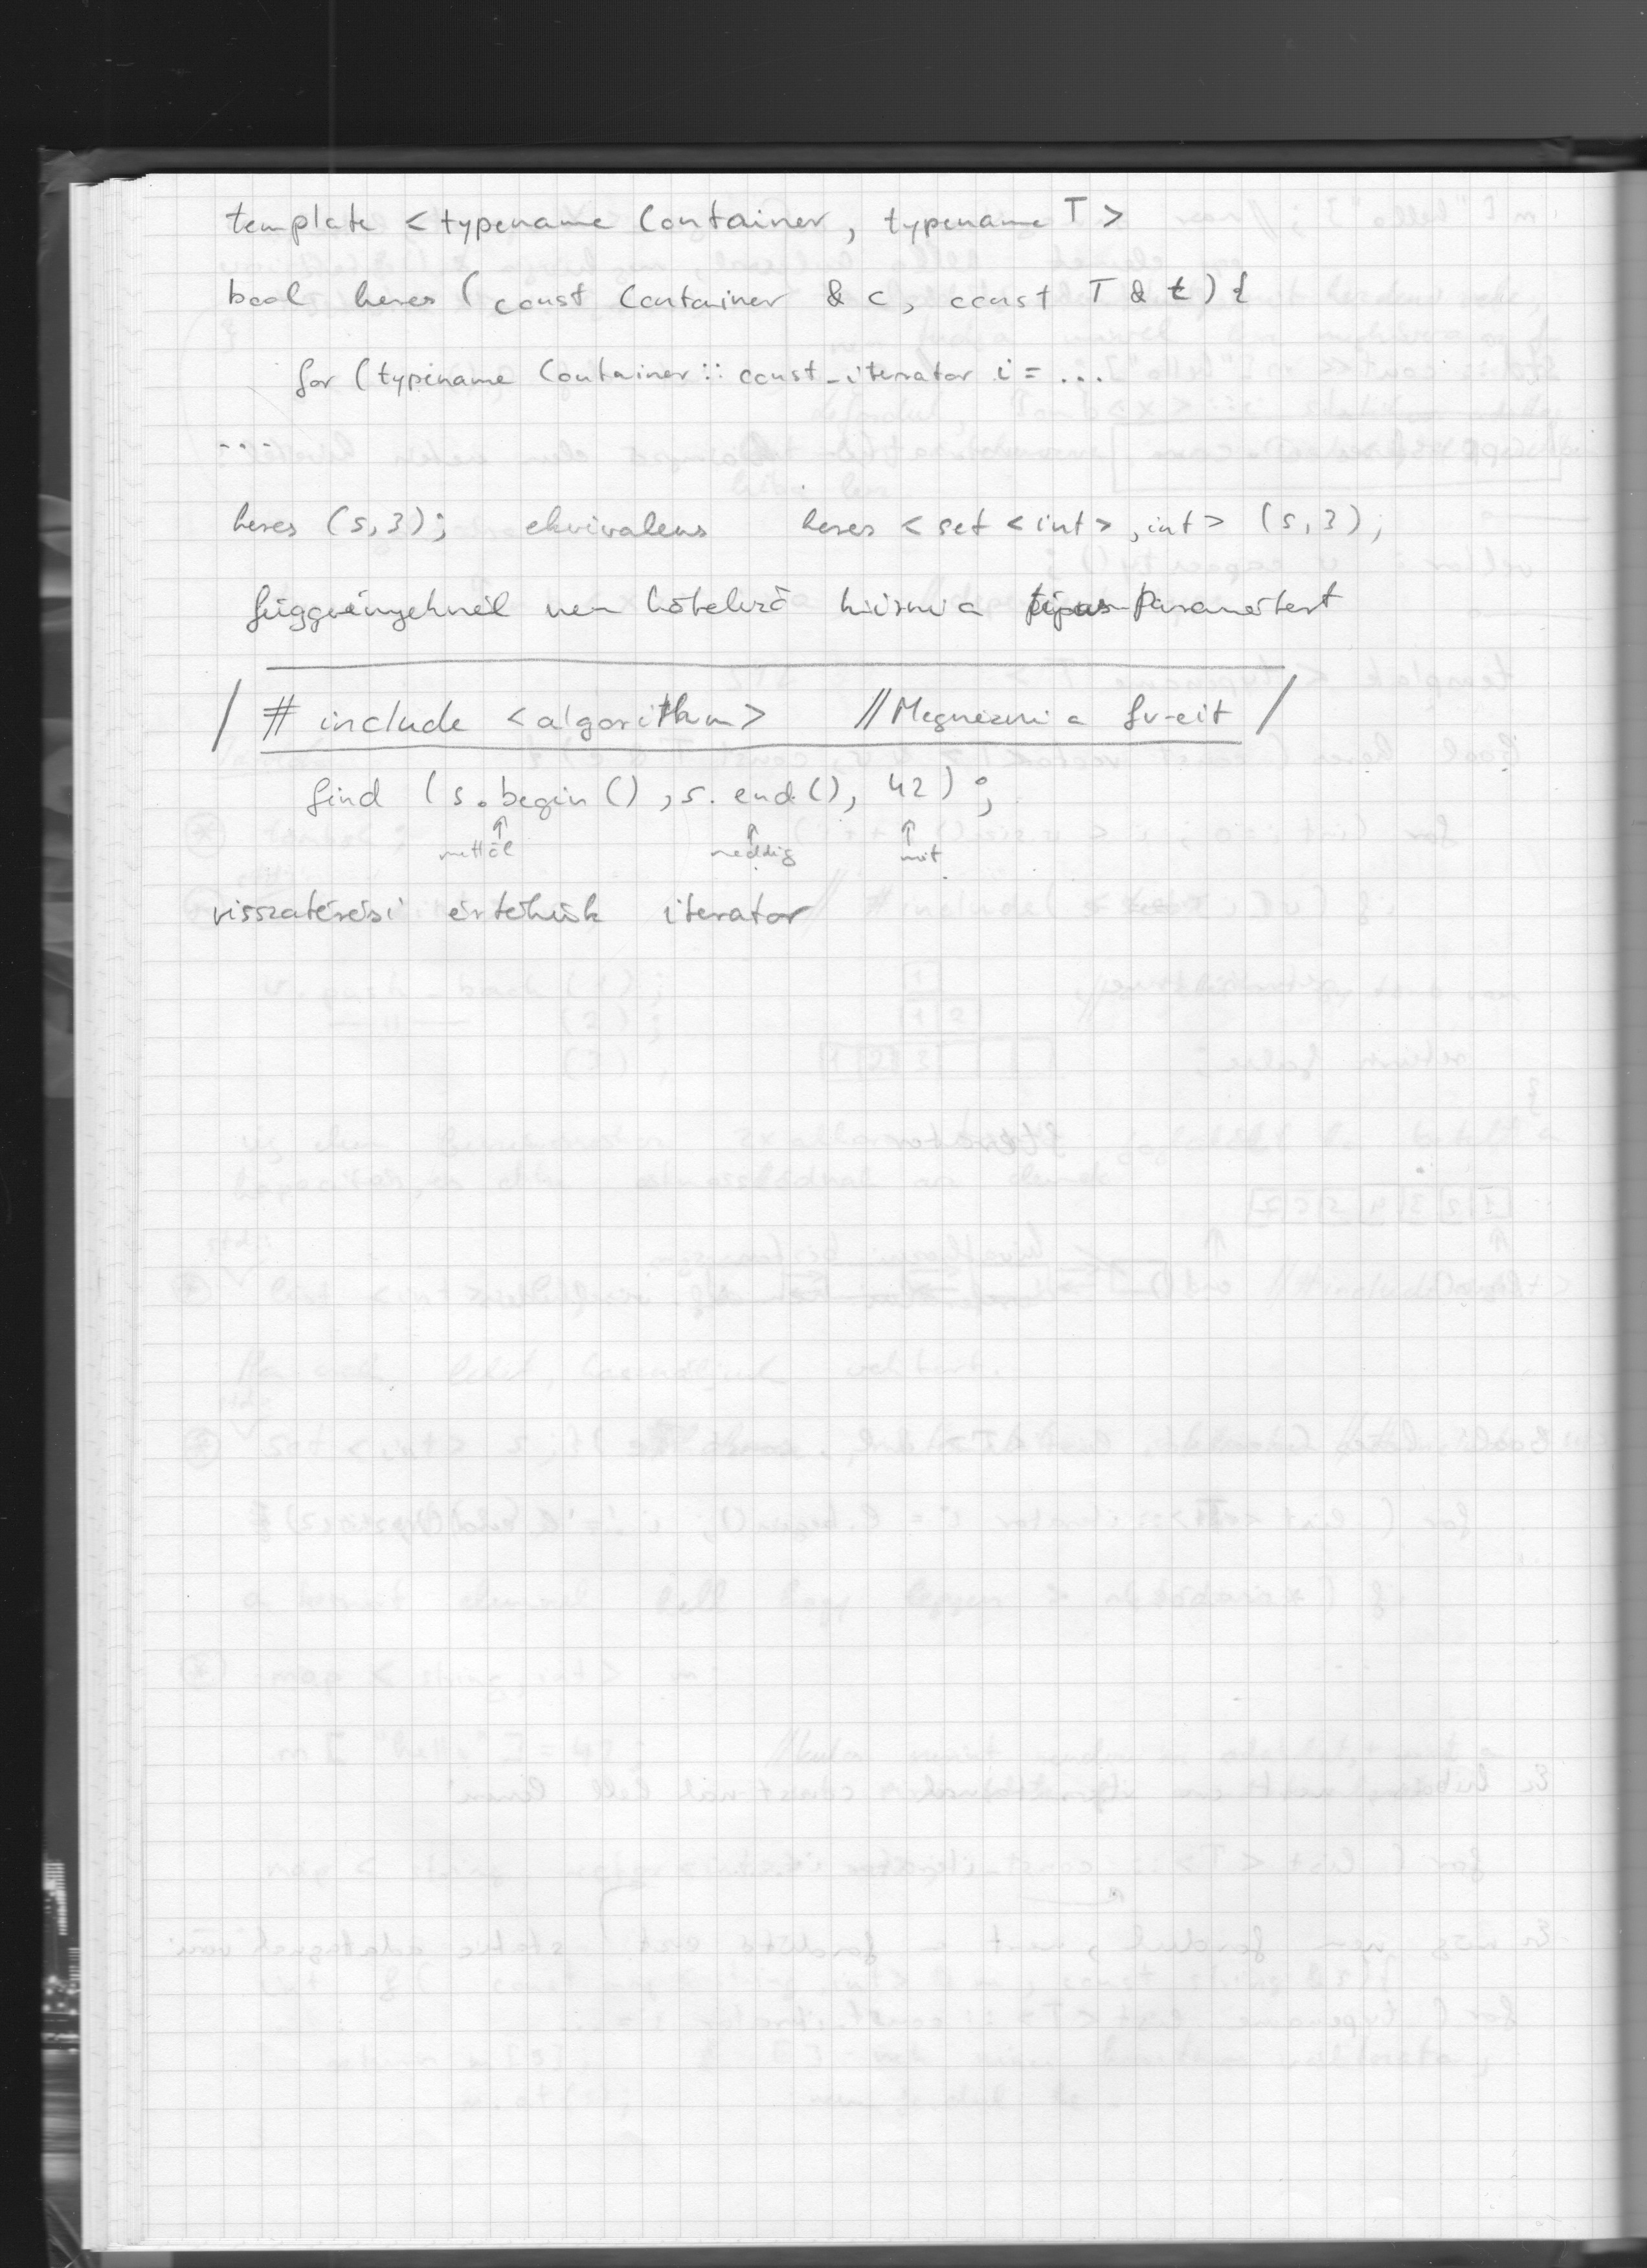 template < typename Container, typename T >
bool keres ( const Container & c, const T & t ) {
for ( typename Container :: const_iterator i = ...
...
keres (s, 3); ekvivalens keres < set < int >, int > (s, 3);
függvényeknél nem kötelező kiírni a típus paramétert
/ # include < algorithm > // Megnézni a fv-eit /
find ( s. begin (), s. end (), 42 ) ;
mettől meddig mit
visszatérési értékük iterator